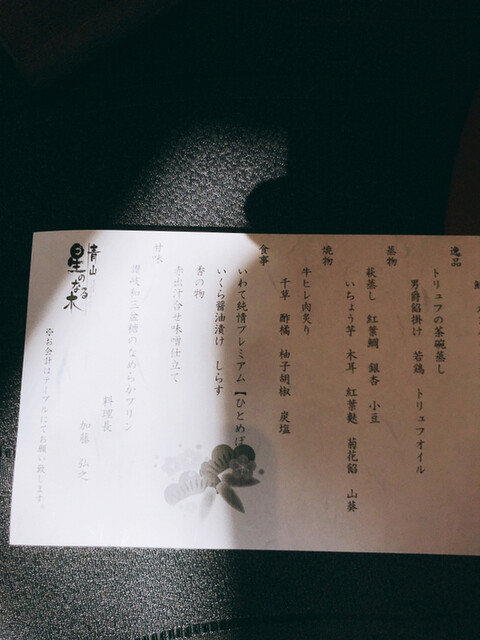 逸品
トリュフの茶碗蒸し
男爵餡掛け 若鶏 トリュフオイル
蒸物
萩蒸し 紅葉鯛 銀杏 小豆
いちょう芋 木耳 紅葉麩 菊花餡 山葵
焼物
牛ヒレ肉炙り
千草 酢橘 柚子胡椒 炭塩
食事
いわて純情プレミアム【ひとめぼ
いくら醤油漬け しらす
香の物
赤出汁合せ味噌仕立て
甘味
讃岐和三盆糖のなめらかプリン
料理長
加藤 弘之
青山
星のなる木
※お会計はテーブルにてお願い致します。